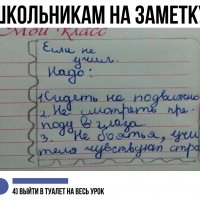 ШКОЛЬНИКАМ НА ЗАМЕТКУ
Мой класс
Если не
учил.
Надо:
1. Сидеть не подвижно
2. Не смотреть пре-
поду в глаза
3. Не бояться, учи
теля чувствуют стра
4) ВЫЙТИ В ТУАЛЕТ НА ВЕСЬ УРОК